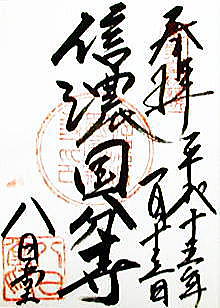 奉拝 平成十五年
一月十三日
信濃国分寺
八日堂